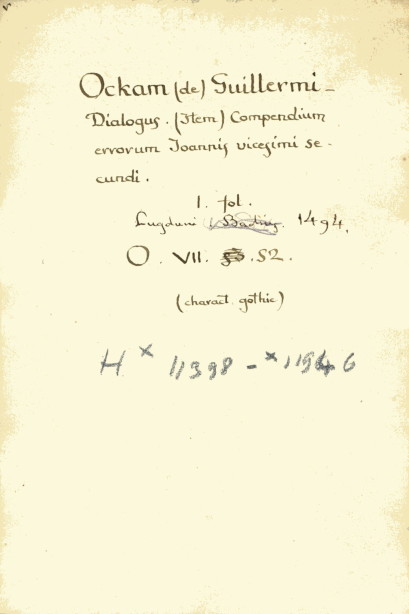 Ockam (de) Guillermi -
Dialogus. (Item) Compendium
errorum Joannis vicesimi se-
cundi.
1. fol.
Lugduni 1494.
O. VII. 52.
(charact. gothic)
H x 11398 - x 11946